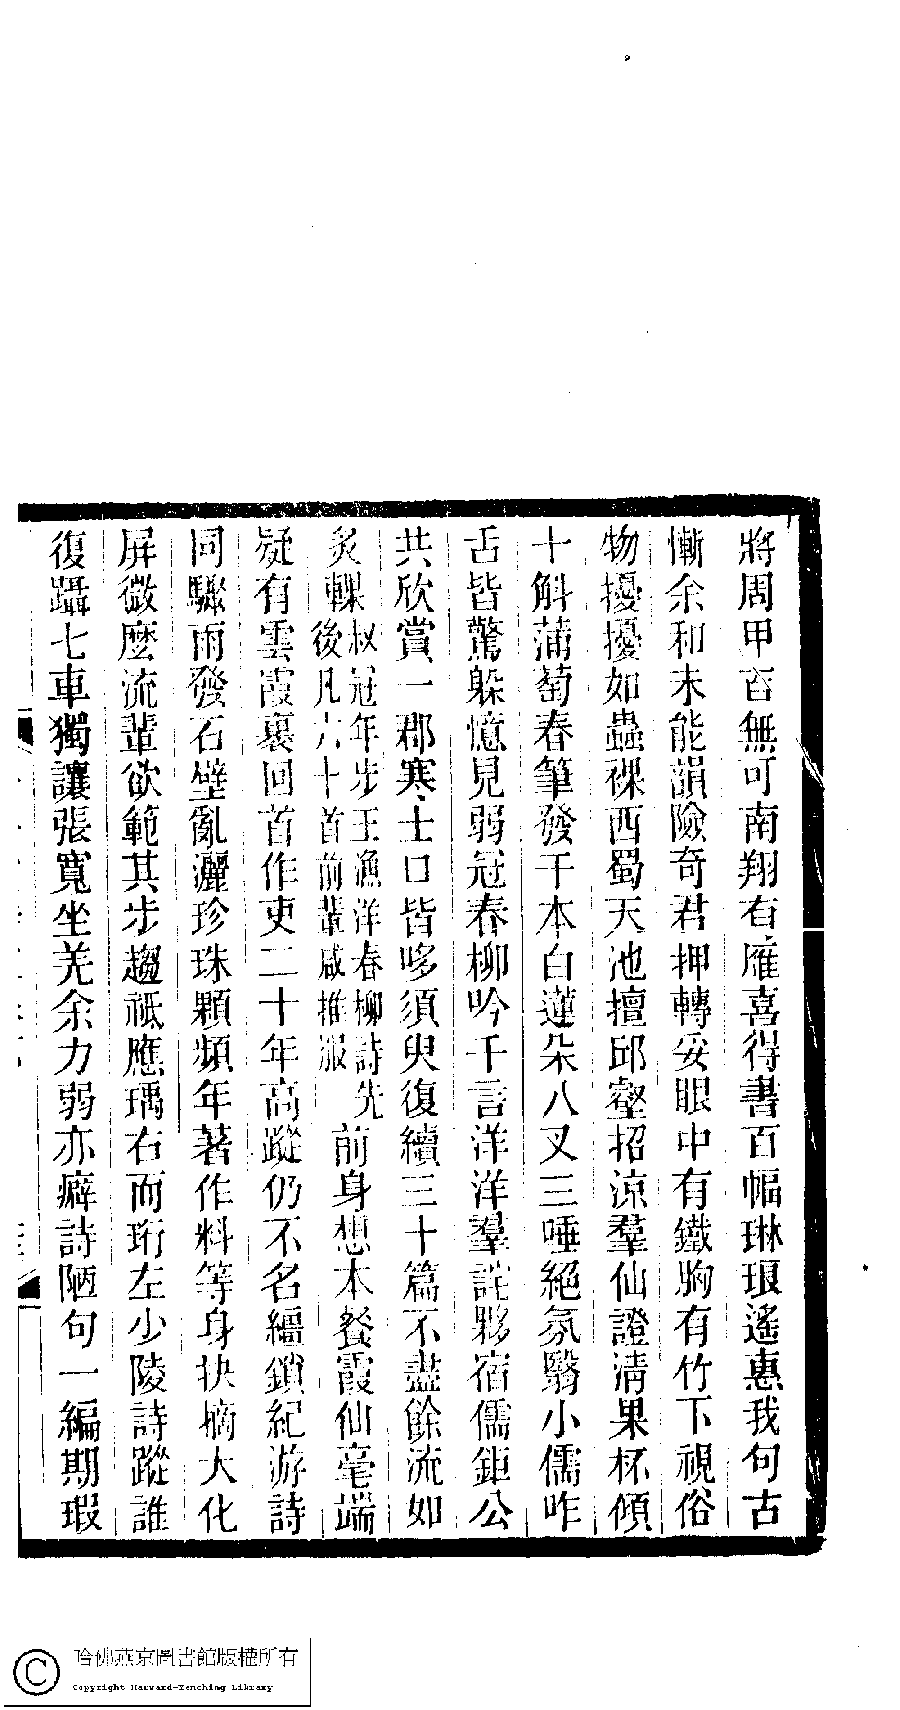 將周甲否無可南翔有雁喜得書百幅琳琅遙惠我句古
慚余和未能韻險奇君押轉妥眼中有鐵胸有竹下視俗
物擾擾如蟲裸西蜀天池擅邱壑招涼羣仙證清果杯傾
十斛蒲萄春筆發千本白蓮朵八叉三唾絕氛翳小儒咋
舌皆驚躲憶見弱冠春柳吟千言洋洋羣詫夥宿儒鉅公
共欣賞一郡寒士口皆哆須臾復續三十篇不盡餘流如
炙輠叔冠年步王漁洋春柳詩先後凡六十首前輩咸推服前身想本餐霞仙毫端
疑有雲霞裹回首作吏二十年高蹤仍不名繮鎖紀游詩
同驟雨發石壁亂灑珍珠顆頻年著作料等身抉摘大化
屏微麼流輩欲範其步趨祗應瑀右而珩左少陵詩蹤誰
復躡七車獨讓張寬坐羌余力弱亦癖詩陋句一編期瑕
哈佛燕京圖書館版權所有
Copyright Harvard-Yenching Library